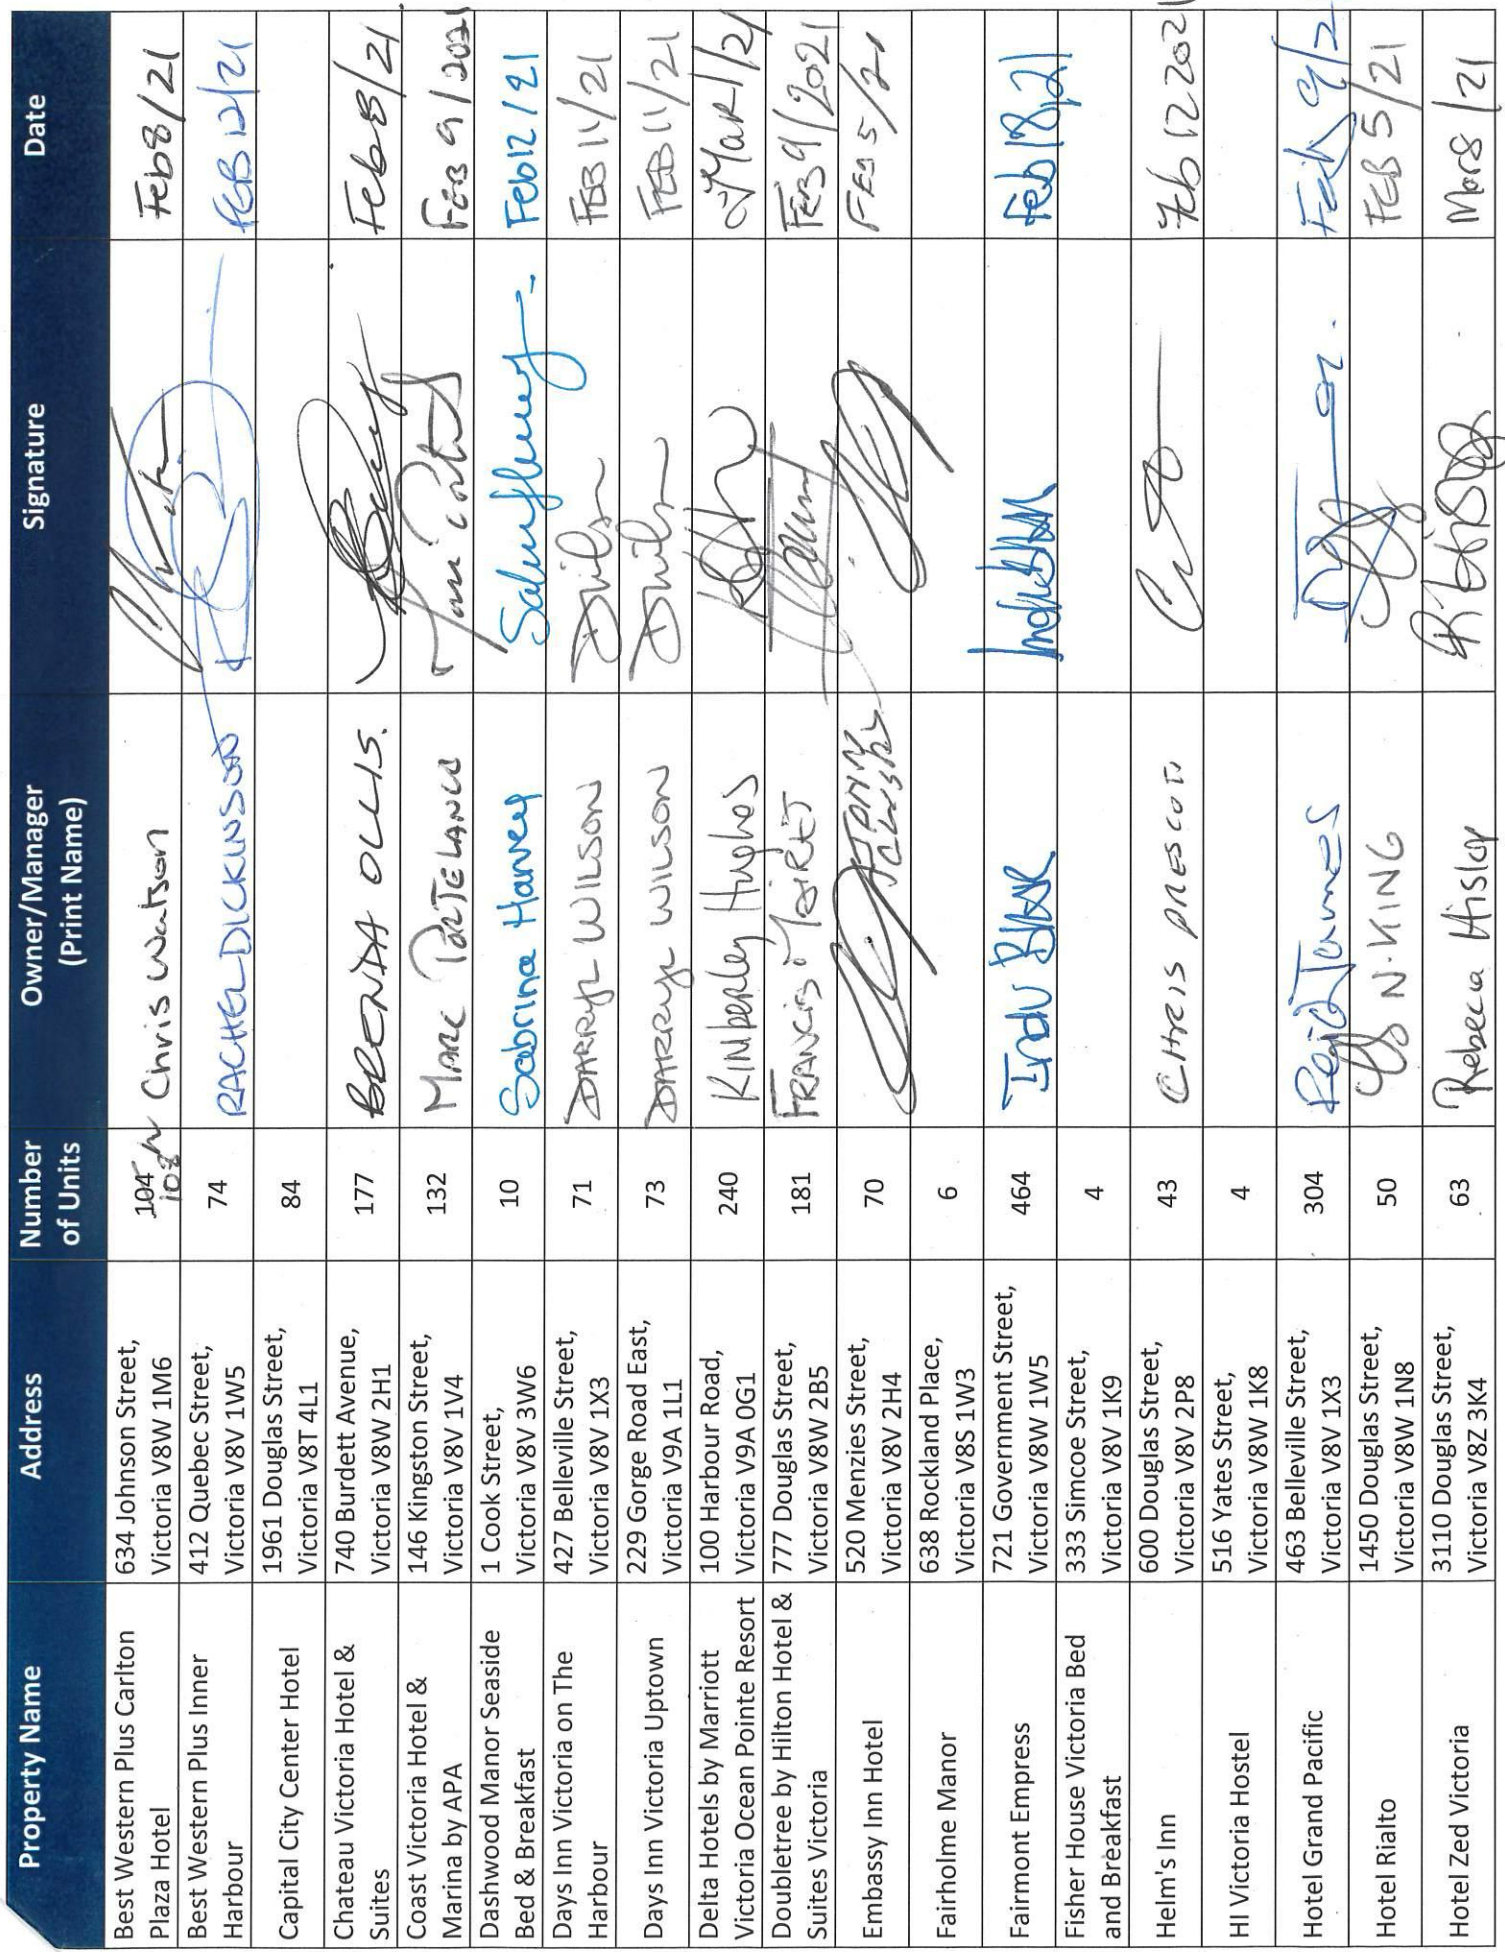 Property Name
Address
Number
of Units
Owner/Manager
(Print Name)
Signature
Date
Best Western Plus Carlton
Plaza Hotel
634 Johnson Street,
Victoria V8W 1M6
104
108
Chris Watson
Feb8/21
Best Western Plus Inner
Harbour
412 Quebec Street,
Victoria V8V 1W5
74
RACHEL DICKINSON
FEB 12/21
Capital City Center Hotel
1961 Douglas Street,
Victoria V8T 4L1
84
Chateau Victoria Hotel &
Suites
740 Burdett Avenue,
Victoria V8W 2H1
177
BRENDA OLLIS.
Feb 8/21
Coast Victoria Hotel &
Marina by APA
146 Kingston Street,
Victoria V8V 1V4
132
MARC PORTELANCE
FEB 9/2021
Dashwood Manor Seaside
Bed & Breakfast
1 Cook Street,
Victoria V8V 3W6
10
Sabrina Harvey
Feb12/21
Days Inn Victoria on The
Harbour
427 Belleville Street,
Victoria V8V 1X3
71
DARRYL WILSON
FEB 11/21
Days Inn Victoria Uptown
229 Gorge Road East,
Victoria V9A 1L1
73
DARRYL WILSON
FEB 11/21
Delta Hotels by Marriott
Victoria Ocean Pointe Resort
100 Harbour Road,
Victoria V9A 0G1
240
KIMberley Hughes
Mar 1/21
Doubletree by Hilton Hotel &
Suites Victoria
777 Douglas Street,
Victoria V8W 2B5
181
FRANCIS MAIRET
FEB 9/2021
Embassy Inn Hotel
520 Menzies Street,
Victoria V8V 2H4
70
FEB 5/21
Fairholme Manor
638 Rockland Place,
Victoria V8S 1W3
6
Fairmont Empress
721 Government Street,
Victoria V8W 1W5
464
Indu Brar
Feb 18,21
Fisher House Victoria Bed
and Breakfast
333 Simcoe Street,
Victoria V8V 1K9
4
Helm's Inn
600 Douglas Street,
Victoria V8V 2P8
43
CHRIS PRESCOTT
Feb 12 2021
HI Victoria Hostel
516 Yates Street,
Victoria V8W 1K8
4
Hotel Grand Pacific
463 Belleville Street,
Victoria V8V 1X3
304
Reid James
Feb 9/2
Hotel Rialto
1450 Douglas Street,
Victoria V8W 1N8
50
N. KING
FEB 5/21
Hotel Zed Victoria
3110 Douglas Street,
Victoria V8Z 3K4
63
Rebecca Hislop
Mar 8/21